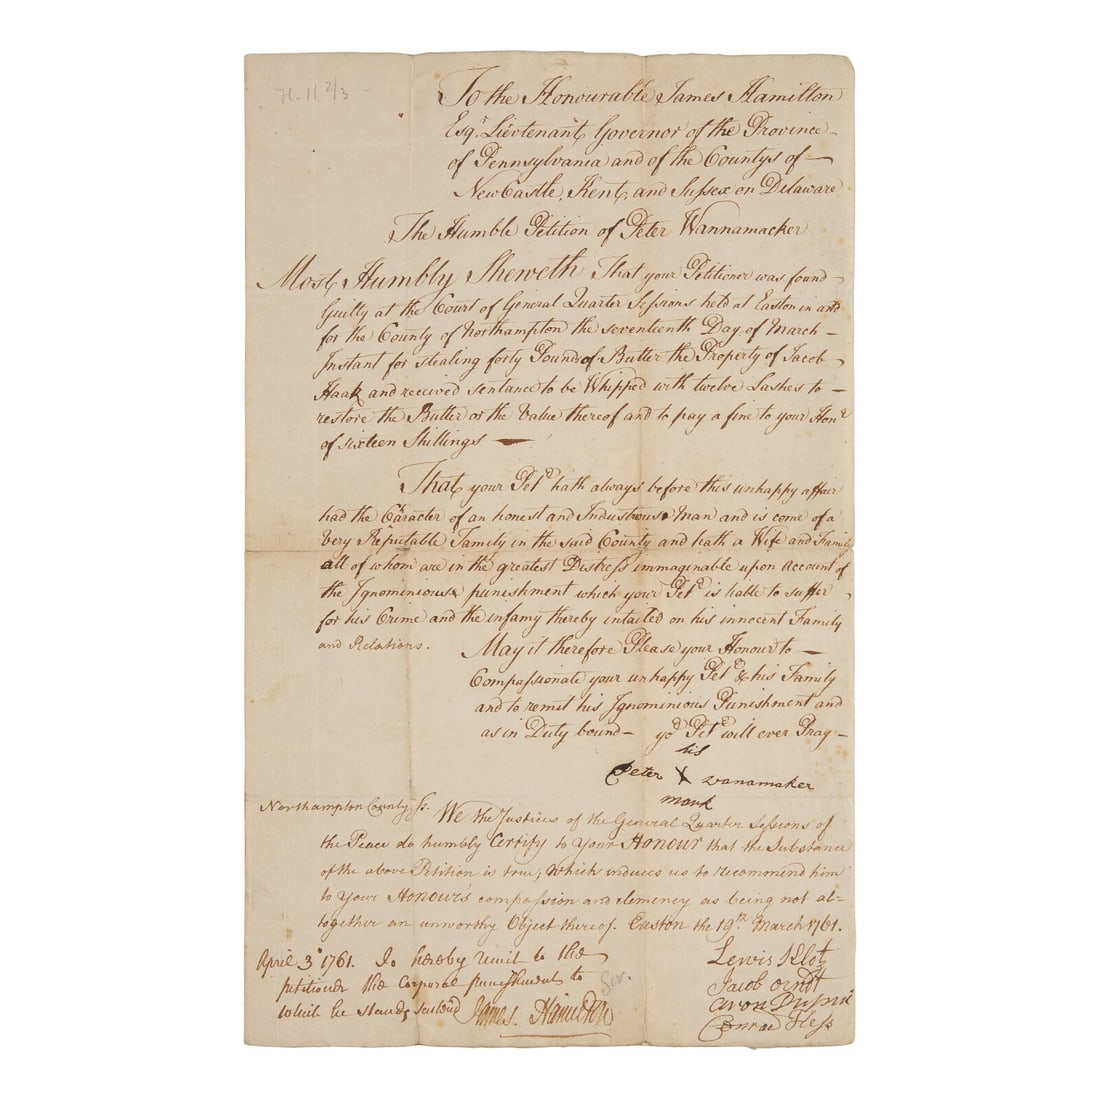 H-11 2/3
To the Honourable James Hamilton
Esqr. Lieutenant Governor of the Province
of Pennsylvania and of the Countys of
NewCastle, Kent, and Sussex on Delaware
The Humble Petition of Peter Wannamacker
Most Humbly Sheweth That your Petitioner was found
Guilty at the Court of General Quarter Sessions held at Easton in and
for the County of Northampton the seventeenth Day of March
Instant for stealing forty Pounds of Butter the Property of Jacob
Haak and received sentance to be Whipped with twelve Lashes to
restore the Butter or the Value thereof and to pay a fine to your Honr
of sixteen Shillings
That your Petr hath always before this unhappy affair
had the Character of an honest and Industrous Man and is come of a
very Reputable Family in the said County and hath a Wife and Family
all of whom are in the greatest Distress immaginable upon account of
the Ignominious punishment which your Petr is liable to suffer
for his Crime and the infamy thereby intailed on his innocent Family
and Relations.
May it therefore Please your Honour to
Compassionate your unhappy Petr & his Family
and to remit his Ignominious Punishment and
as in Duty bound yor Petr will ever Pray
his
Peter X wanamaker
mark
Northampton County Ss.
We the Justices of the General Quarter Sessions of
the Peace do humbly Certify to Your Honour that the Substance
of the above Petition is true; Which induces us to recommend him
to Your Honour's compassion and clemency as being not al=
together an unworthy Object thereof. Easton the 19th March 1761.
April 3d 1761. I do hereby remit to the
petitioner the corporal punishment to
which he stands sentenced
James Hamilton
Lewis Klotz
Jacob Arndt
Aron Dupui
Conrad Hess